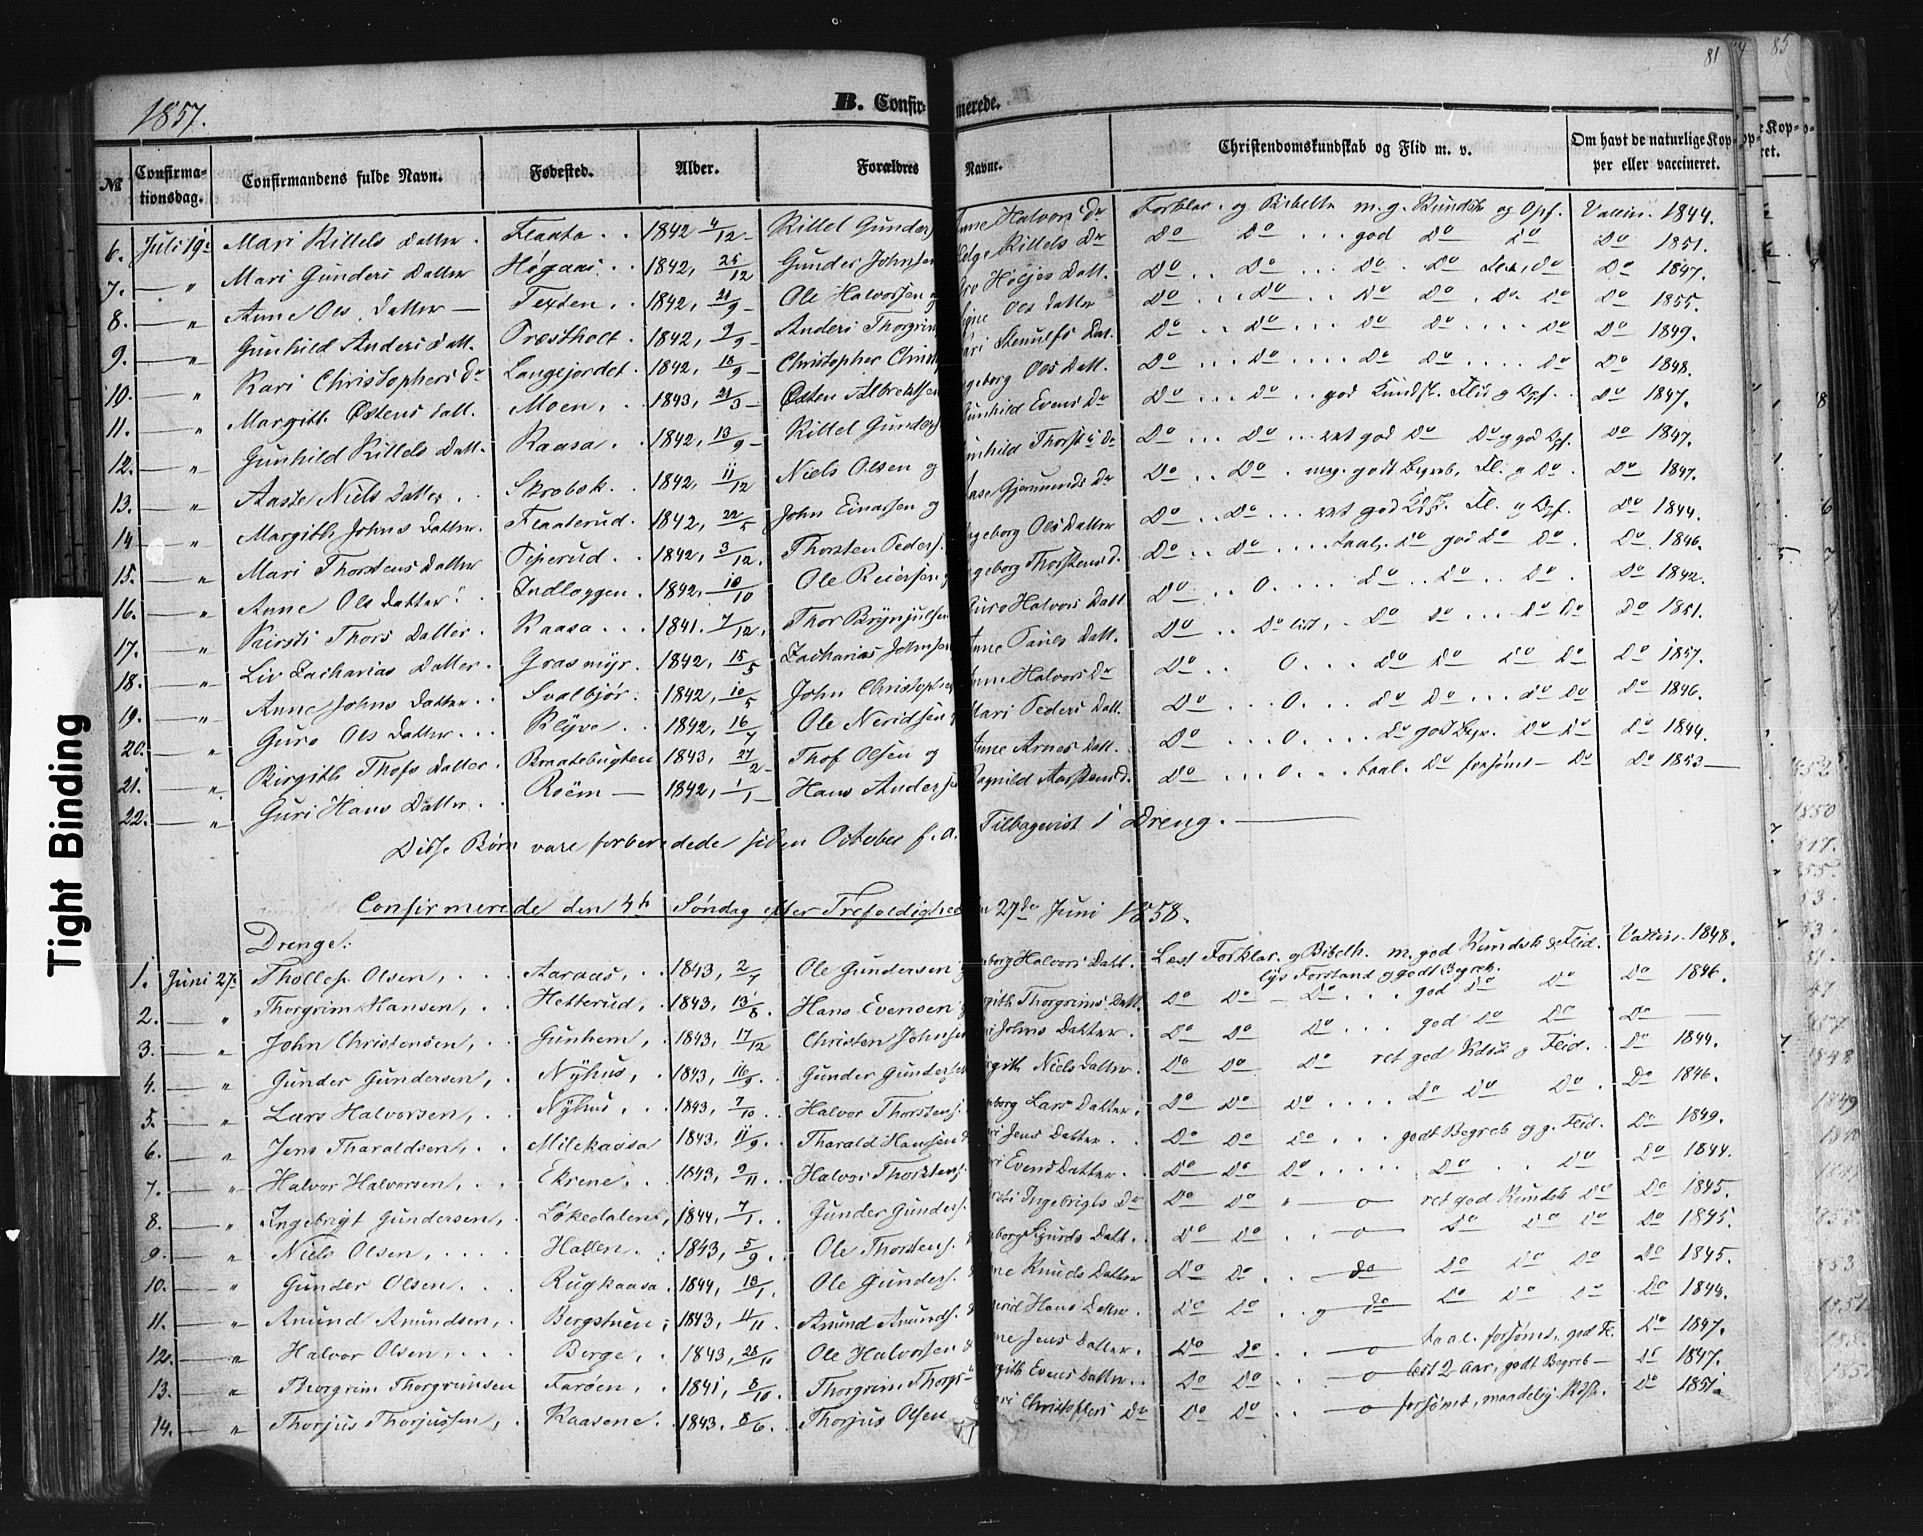 81
85
1857.
B. Confirmerede.
№ Confirmationsdag. Confirmandens fulde Navn. Fødested. Alder. Forældres Navne. Christendomskundskab og Flid m. v. Om havt de naturlige Kopper eller vaccineret.
6. Juli 19. Mari Kittels Datter. Flaata 1842 4/12 Kittel Gunders Anne Halvors Dr Forklar. og Bibelh. m. g. Kundsk og Opf. Vaccin. 1844.
7. — " Mari Gunders Datter Høgaas 1842, 25/12 Gunder Johnsen Helge Kittels Dr Do Do god Do Do Do 1851.
8. — " Anne Ols Datter — Texten 1842, 21/9 Ole Halvorsen og Gro Høljes Datt. Do Do Do Do Do Do 1847.
9. — " Gunhild Anders Datt. Præstholt 1842, 9/9 Anders Thorgrim Signe Ols Datter Do Do Do Do Do Do Do 1855.
10. — " Kari Christophers Dr Langejordet 1842, 18/9 Christopher Christ Kari Stenulfs Dat. Do Do Do Do Do Do 1849.
11. — " Margith Østens Datt. Moen 1843, 21/3 Østen Albrektsen Ingeborg Ols Datt. Do Do Do Do Do Do 1848.
12. — " Gunhild Kittels Datt. Kaasa 1842, 13/9 Kittel Gunders Gunhild Evens Dr Do Do god Kundsk. Flid og Opf. Do 1847.
13. — " Aaste Niels Datter Skrobek 1842, 11/12 Niels Olsen og Gunhild Thorst Dr Do Do ret god Do Do g god Opf. Do 1847.
14. — " Margith Johns Datter. Flaaterud 1842, 22/5 John Einarsen og Aase Gjermunds Dr Do Do meg. godt Begreb, Fl. g Do Do 1847.
15. — " Mari Thorstens Datter Piperud 1842, 3/12. Thorsten Peders. Ingeborg Ols Datter Do Do ret god Fl. g Opf. Do 1844.
16. — " Anne Ols Datter. Indlæggen 1842, 10/10 Ole Reiersen Ingeborg Thorstens D. Do Do taal. Do god Do Do Do 1846.
17. — " Kirsti Thors Datter. Kaasa 1841. 7/12. Thor Brynjulfsen Guro Halvors Datt Do O. Do Do Do Do 1842.
18. — " Liv Zacharias Datter. Grasmyr 1842, 15/5 Zacharias Johnsen Anne Pauls Datt. Do Do Do Do Do Do 1851.
19. — " Anne Johns Datter. Svalbjør 1842, 10/5 John Christophers Anne Halvors Dr Do O. Do Do Do Do Do 1857.
20. — " Guro Ols Datter Klyve 1842, 16/7 Ole Neridsen Mari Peders Datt. Do O. Do Do Do Do Do 1846.
21. — " Birgith Thofs Datter. Braatebugten 1843, 27/2 Thof Olsen og Anne Arnes Datt. Do O. Do god Begr. Do Do Do 1844.
22. — " Guri Hans Datter Roëm — 1842, 1/1 Hans Anders Ragnild Aarstens D. Do O. taal. Do forsømt — Do Do 1853 —
Disse Børn vare forberedede siden October f. a. Tilbagevist 1 Dreng.
Confirmerede den 4de Søndag efter Trefoldighed 27de Juni 1858.
Drenge:
1. Juni 27. Thollef Olsen, Aaraas, 1843, 2/7 Ole Gundersen Halvors Datt. Læst Forklar. g Bibelh. m. god Kundsk & Flid. Vaccin. 1848.
lys Forstand g godt Begreb.
2. — " Thorgrim Hansen, Hetterud, 1843, 13/8 Hans Evensen Thorgrims Datt. Do Do Do god Do Do Do 1846.
3. — " John Christensen, Gunhem, 1843, 17/12 Christen Johnsen Johns Datter. Do Do Do god Do Do Do —
4. — " Gunder Gundersen, Nyhus, 1843, 16/9. Gunder Gundersen Niels Datter. Do Do Do ret god Kdsk g Flid. Do 1844.
5. — " Lars Halvorsen, Nyhus, 1843, 7/10. Halvor Thorstens. Lars Datter. Do Do Do Do Do Do Do 1846.
6. — " Jens Tharaldsen, Milekaasa 1843, 11/9. Tharald Hansen Jens Datter. Do Do Do godt Begreb og g. Flid. Do 1849.
7. — " Halvor Halvorsen, Ekrene, 1843, 9/11. Halvor Thorstens. Evens Datter. Do Do Do Do Do Do 1844.
8. — " Ingebrigt Gundersen, Løkedalen, 1844, 7/1. Gunder Gunders. Ingebrigts Dr Do Do " — o — ret god Kundsk Do Do 1845.
9. — " Niels Olsen, Hallen 1843, 5/9. Ole Thorstens. Sigurds Datt. Do Do — o — Do Do Do Do 1845.
10. — " Gunder Olsen. Rugkaasa 1844, 13/1. Ole Gunders. Knuds Datter Do Do — do — Do Do Do Do 1845.
11. — " Anund Anundsen, Bergstuen, 1843, 11/11 Anund Anunds. Hans Datter. Do Do g — do — Do Do Do Do 1844.
12. — " Halvor Olsen, Berge, 1843, 28/10 Ole Halvorsen Jens Datter. Do Do — o — taal. forsømt, god Fl. Do 1847.
13. — " Thorgrim Thorgrimsen Farøen, 1841, 8/10. Thorgrim Thorgr. Evens Datter. Do Do — o — læst 2 Aar, godt Begreb — Do 1847.
14. — " Thorjus Thorjussen, Kaasene. 1843, 8/6 Thorjus Olsen Christophers Dr Do Do — o — forsømt, maadelig Kdsk. Do 1851
Tight Binding